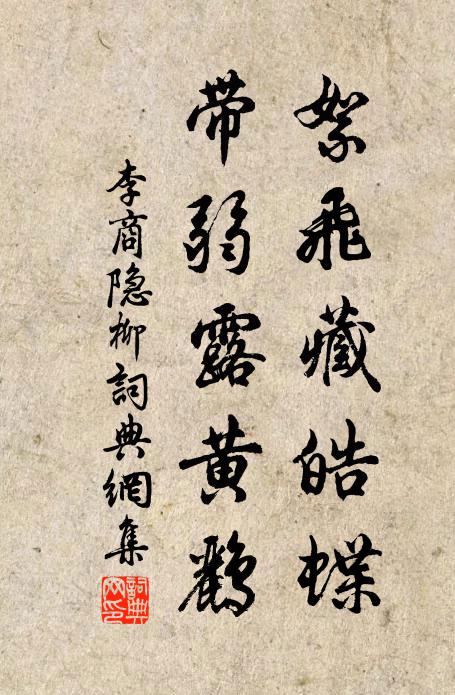 絮飛藏皓蝶
帶弱露黄鸝
李商隐柳詞典網集
詞典
网印